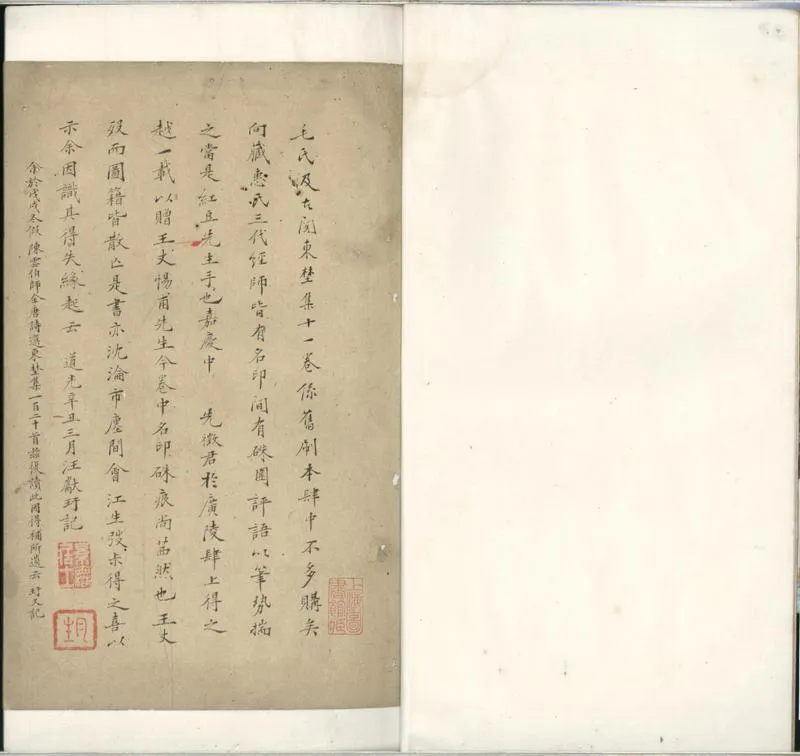 毛氏汲古閣東埜集十一卷係舊刷本肆中不多購矣
向藏惠氏三代經師皆有名印間有硃圈評語以筆勢揣
之當是紅豆先生手也嘉慶中 先徵君於廣陵肆上得之
越一載以贈王丈惕甫先生今卷中名印硃痕尚茜然也王丈
歿而圖籍皆散亡是書亦沈淪市廛間會江生弢未得之喜以
示余因識其得失緣起云 道光辛丑三月汪獻玗記
余於戊戌冬假陳雲伯師全唐詩選東埜集一百二十首茲復讀此因得補所遺云 玗又記
上海圖書館藏